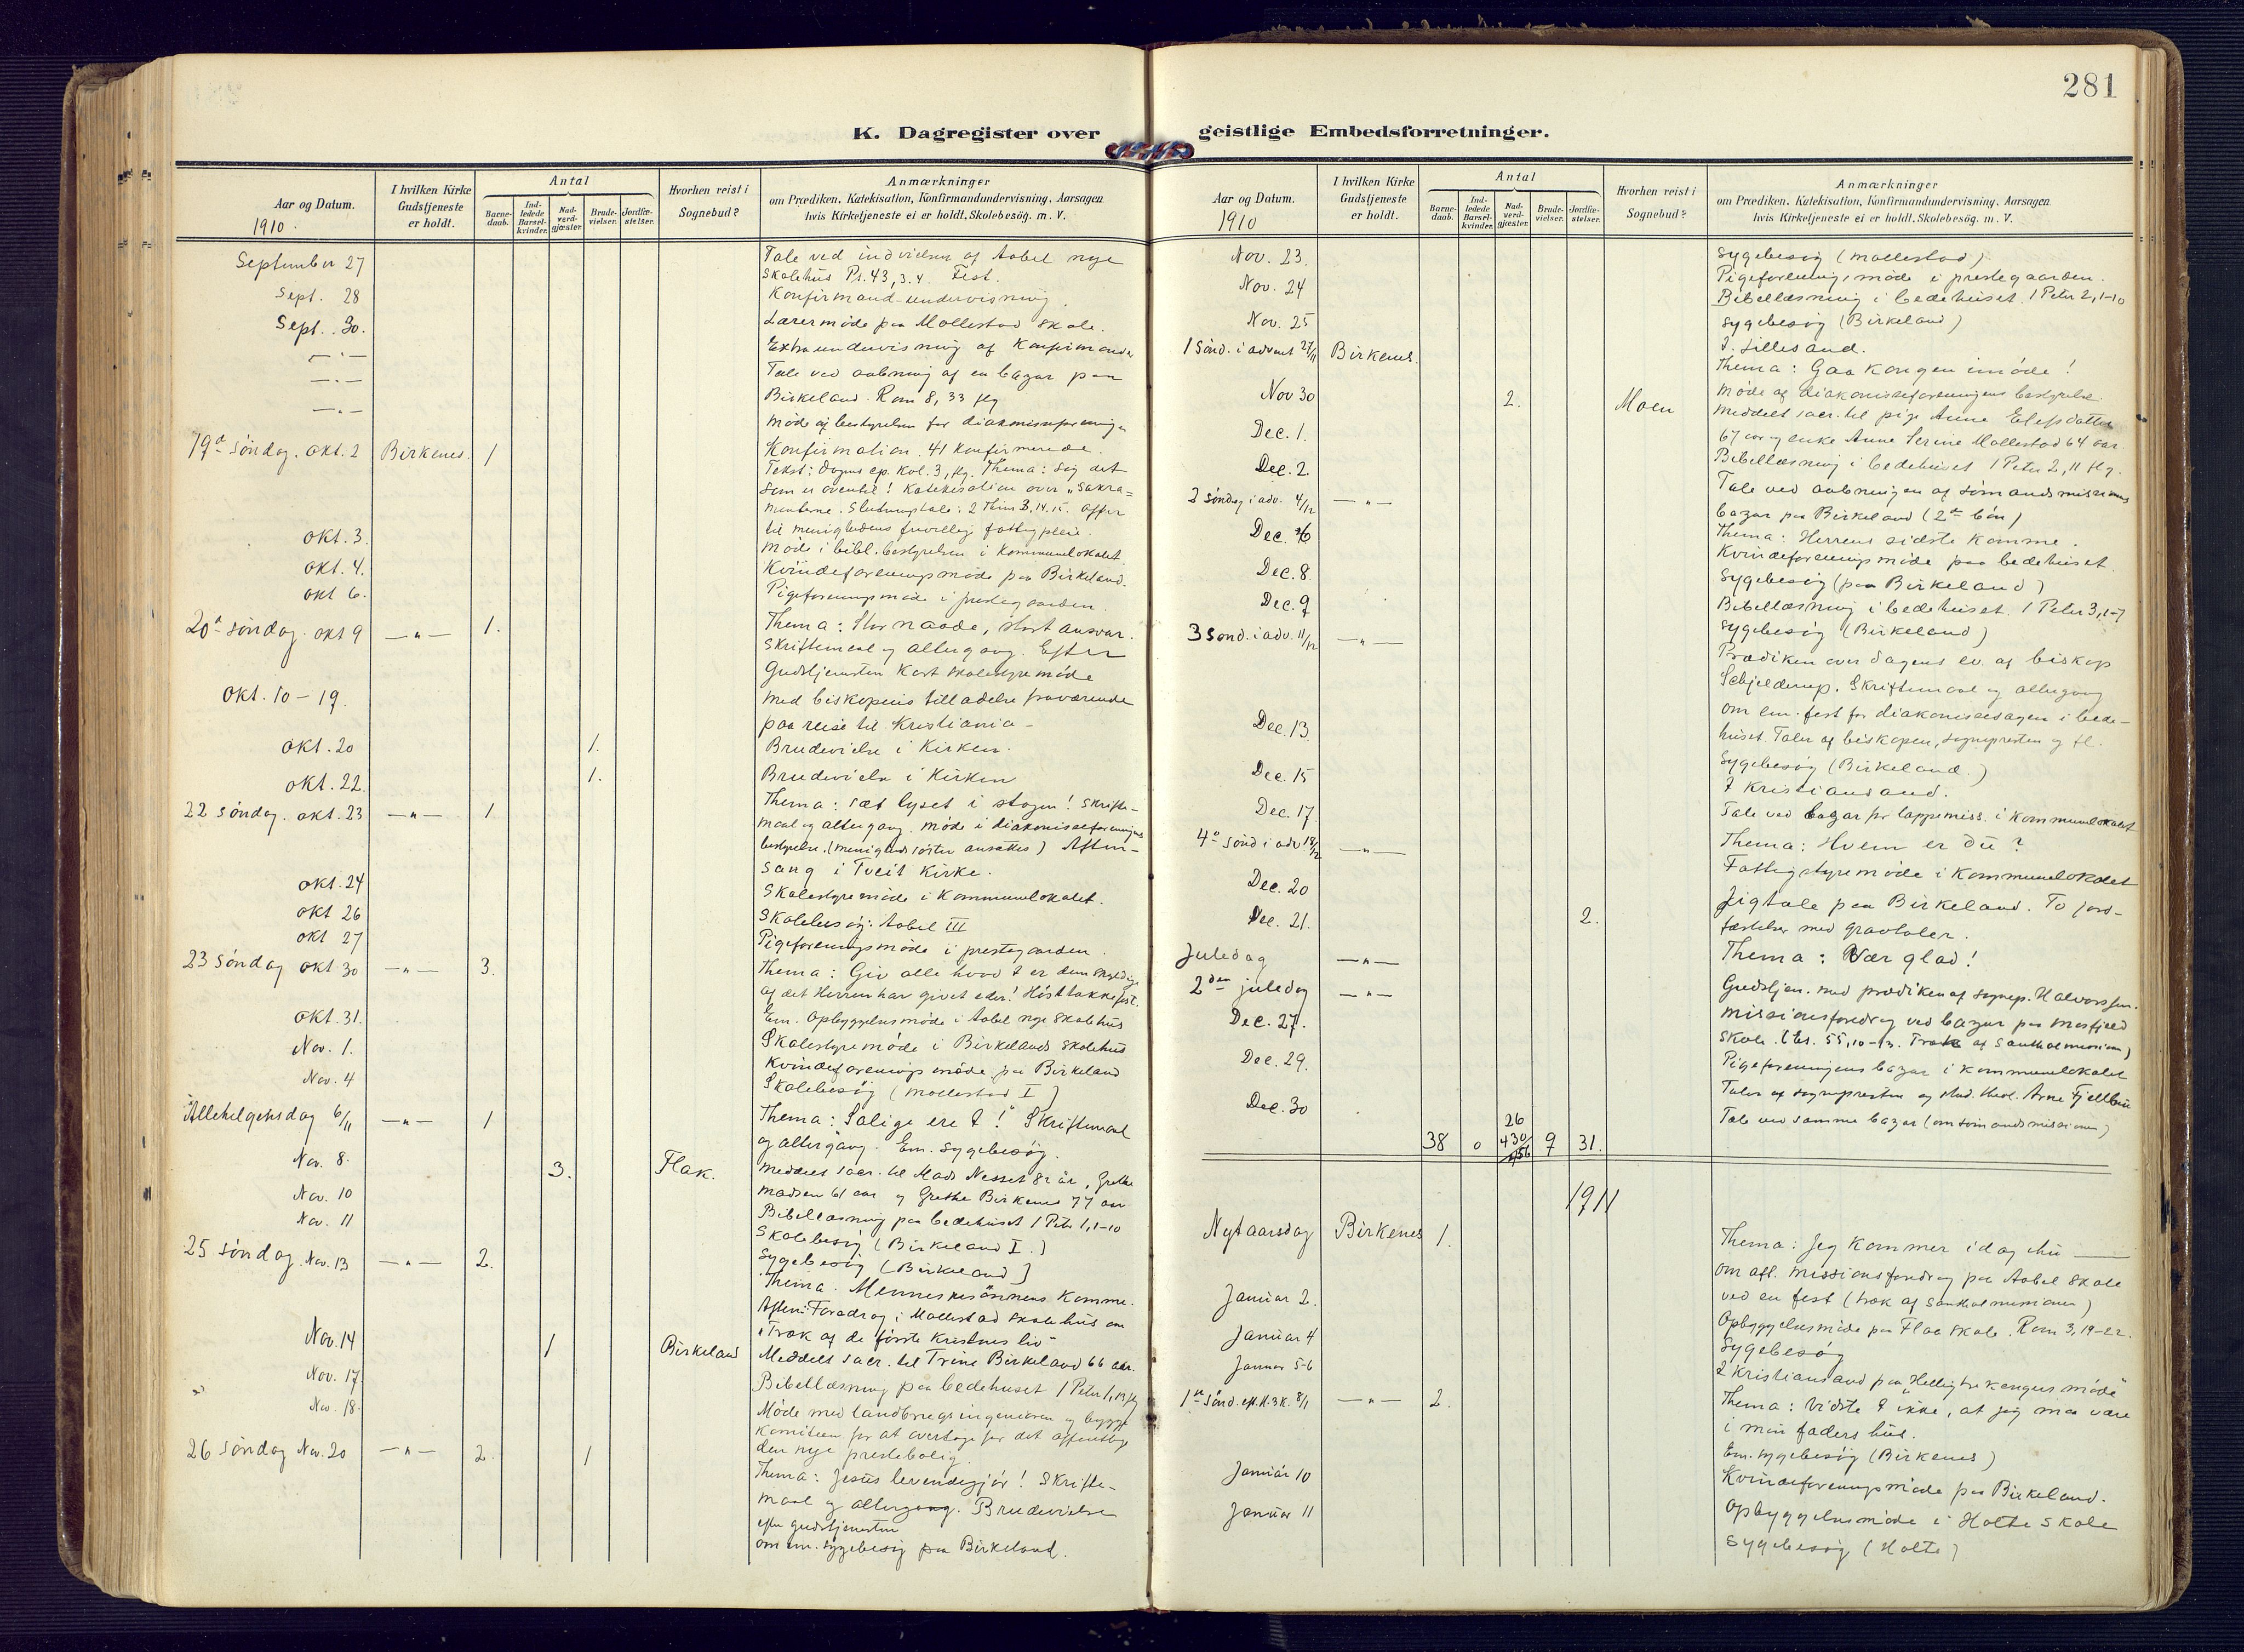 281
K. Dagregister over geistlige Embedsforretninger.
Aar og Datum.
1910.
I hvilken Kirke Gudstjeneste er holdt.
Antal
Barnedaab.
Indledede Barselkvinder.
Nadverdgjæster.
Brudevielser.
Jordfæstelser.
Hvorhen reist i Sognebud?
Anmærkninger
om Prædiken, Katekisation, Konfirmandundervisning, Aarsagen
hvis Kirketjeneste ei er holdt, Skolebesög. m. V.
September 27 Tale ved indvielsen af Aabel nye
skolehus Ps. 43, 3.4. Fest.
Sept. 28 Konfirmand-undervisning.
Sept. 30. Lærermöde paa Mollestad skole.
—"— Extraundervisning af Konfirmander
—"— Tale ved aabning af en bazar paa
Birkeland. Rom 8, 33 flg
—"— Möde af bestyrelsen for diakonisseforeningen
19de söndag. okt. 2 Birkenes. 1 Konfirmation. 41 konfirmerede.
Tekst: dagens ep. Kol. 3, flg. Thema: Søg det
som er oventil! Katekisation over "Sakra=
menterne. Slutningstale: 2 Thim 3, 14.15. Offer
til menighedens frivillig fattigpleie.
okt. 3. Möde i bibl. bestyrelsen i Kommunelokalet.
okt. 4. Kvindeforeningsmöde paa Birkeland.
okt 6. Pigeforeningsmöde i prestegaarden.
20de söndag. okt 9 —"— 1. Thema: Stor naade, stort ansvar.
Skriftemaal og altergang. Efter
Gudstjenesten kort skolestyremöde
okt. 10–19. Med biskopens tilladelse fraværende
paa reise til Kristiania –
okt. 20 1. Brudevielse i Kirken.
okt. 22. 1. Brudevielse i Kirken
22 söndag. okt. 23 —"— 1 Thema: Sæt lyset i stagen! Skrifte-
maal og altergang. Möde i diakonisseforeningens
bestyrelse. (Menighedssöster ansættes) Aften-
sang i Tveit Kirke.
okt. 24 Skolestyremöde i Kommunelokalet.
okt 26 Skolebesög: Aabel III
okt 27 Pigeforeningsmöde i prestegaarden.
23 söndag okt 30 —"— 3. Thema: Giv alle hvad I er dem skyldige
af det Herren har givet eder! Hösttakkefest.
Em. Opbyggelsesmöde i Aabel nye skolehus
okt. 31. Skolestyremöde i Birkelands skolehus
Nov. 1. Kvindeforeningsmöde paa Birkeland
Nov. 4 Skolebesög (Mollestad I)
Allehelgensdag 6/11 —"— 1 Thema: "Salige ere I!" Skriftemaal
og altergang. Em. Sygebesög.
Nov. 8. 3. Flak. Meddelt sacr. til Mads Nesset 82 år, Grethe
Madsen 61 aar og Grethe Birkenes 77 aar
Nov. 10 Bibellæsning paa bedehuset 1 Petr 1, 1–10
Nov. 11 Skolebesög (Birkeland I.)
Sygebesög (Birkeland)
25 söndag. Nov. 13 —"— 2. Thema. Menneskesönnens Komme.
Aften: Foredrag i Mollestad skolehus om
"Træk af de förste Kristnes liv"
Nov. 14 1 Birkeland Meddelt sacr. til Trine Birkeland 66 aar.
Nov. 17. Bibellæsning paa bedehuset 1 Peter 1, 13 flg
Nov. 18. Möde med landbrugsingeniören og bygge
komiteen for at overtage for det offentlige
den nye prestebolig.
26 söndag Nov. 20 —"— 2. 1 Thema: Jesus levendegjör! Skrifte-
maal og altergang. Brudevielse
efter gudstjenesten
om em. sygebesög paa Birkeland.
Aar og Datum.
1910
I hvilken Kirke Gudstjeneste er holdt.
Antal
Barnedaab.
Indledede Barselkvinder.
Nadverdgjæster.
Brudevielser.
Jordfæstelser.
Hvorhen reist i Sognebud?
Anmærkninger
om Prædiken, Katekisation, Konfirmandundervisning, Aarsagen
hvis Kirketjeneste ei er holdt, Skolebesög. m. V.
Nov. 23. Sygebesög (Mollestad)
Nov. 24 Pigeforeningsmöde i prestegaarden.
Bibellæsning i bedehuset. 1 Peter 2, 1–10
Nov. 25 Sygebesög (Birkeland)
I Lillesand.
1 Sönd. i advent 27/11 Birkenes. Thema: Gaa kongen imöde!
Möde af diakonisseforeningens bestyrelse.
Nov 30 2. Moen Meddelt sacr. til pige Anne Elefsdatter
67 aar og enke Anne Serine Mollestad 64 aar
Dec. 1. Bibellæsning i bedehuset 1 Peter 2, 11 flg.
Dec. 2. Tale ved aabningen af sömandsmissionens
bazar paa Birkeland (2den bön)
2 söndag i adv. 4/12 —"— Thema: Herrens sidste Komme.
Dec. 6 Kvindeforeningsmöde paa bedehuset.
Sygebesög (paa Birkeland)
Dec. 8. Bibellæsning i bedehuset. 1 Peter 3, 1–7
Dec. 9 Sygebesög (Birkeland)
3 Sönd. i adv. 11/12 —"— Prædiken over dagens ev. af biskop
Schjelderup. Skriftemaal og altergang
om em. fest for diakonissesagen i bede-
huset. Taler af biskopen, sognepresten og fl.
Dec. 13 Sygebesög (Birkeland.)
Dec. 15 I Kristiansand.
Dec. 17. Tale ved bazar for lappemiss. i Kommunelokalet
4de sönd i adv 18/12 —"— Thema: Hvem er du?
Dec. 20 Fattigstyremöde i Kommunelokalet
Dec. 21. 2. Ligtale paa Birkeland. To jord-
fæstelser med gravtaler.
Juledag —"— Thema: Vær glad!
2den juledag —"— Gudstjen. med prædiken af sognep. Halvorssen.
Dec. 27. Missionsforedrag ved bazar paa Mosfjeld
skole. (Es. 55, 10–13. Træk af Santhalmissionen)
Dec. 29. Pigeforeningens bazar i Kommunelokalet
Taler af sognepresten og stud. theol. Arne Fjellbu
Dec. 30 Tale ved samme bazar (om sömandsmissionen)
26
38 0 430 9 31.
456
1911
Nytaarsdag Birkenes 1. Thema: Jeg kommer idag thi ——
om aft. missionsforedrag paa Aabel skole
ved en fest (træk af Santhalmissionen)
Januar 2. Opbyggelsesmöde paa Flaa skole. Rom 3, 19–22.
Januar 4 Sygebesög
Januar 5-6 I Kristiansand paa "Helligtrekongers möde"
1ste Sönd. eft. H.3K. 8/1 —"— 2. Thema: Vidste I ikke, at jeg maa være
i min faders hus.
Em. sygebesög (Birkenes)
Januar 10 Kvindeforeningsmöde paa Birkeland.
Januar 11 Opbyggelsesmöde i Holte skole
Sygebesög (Holte)